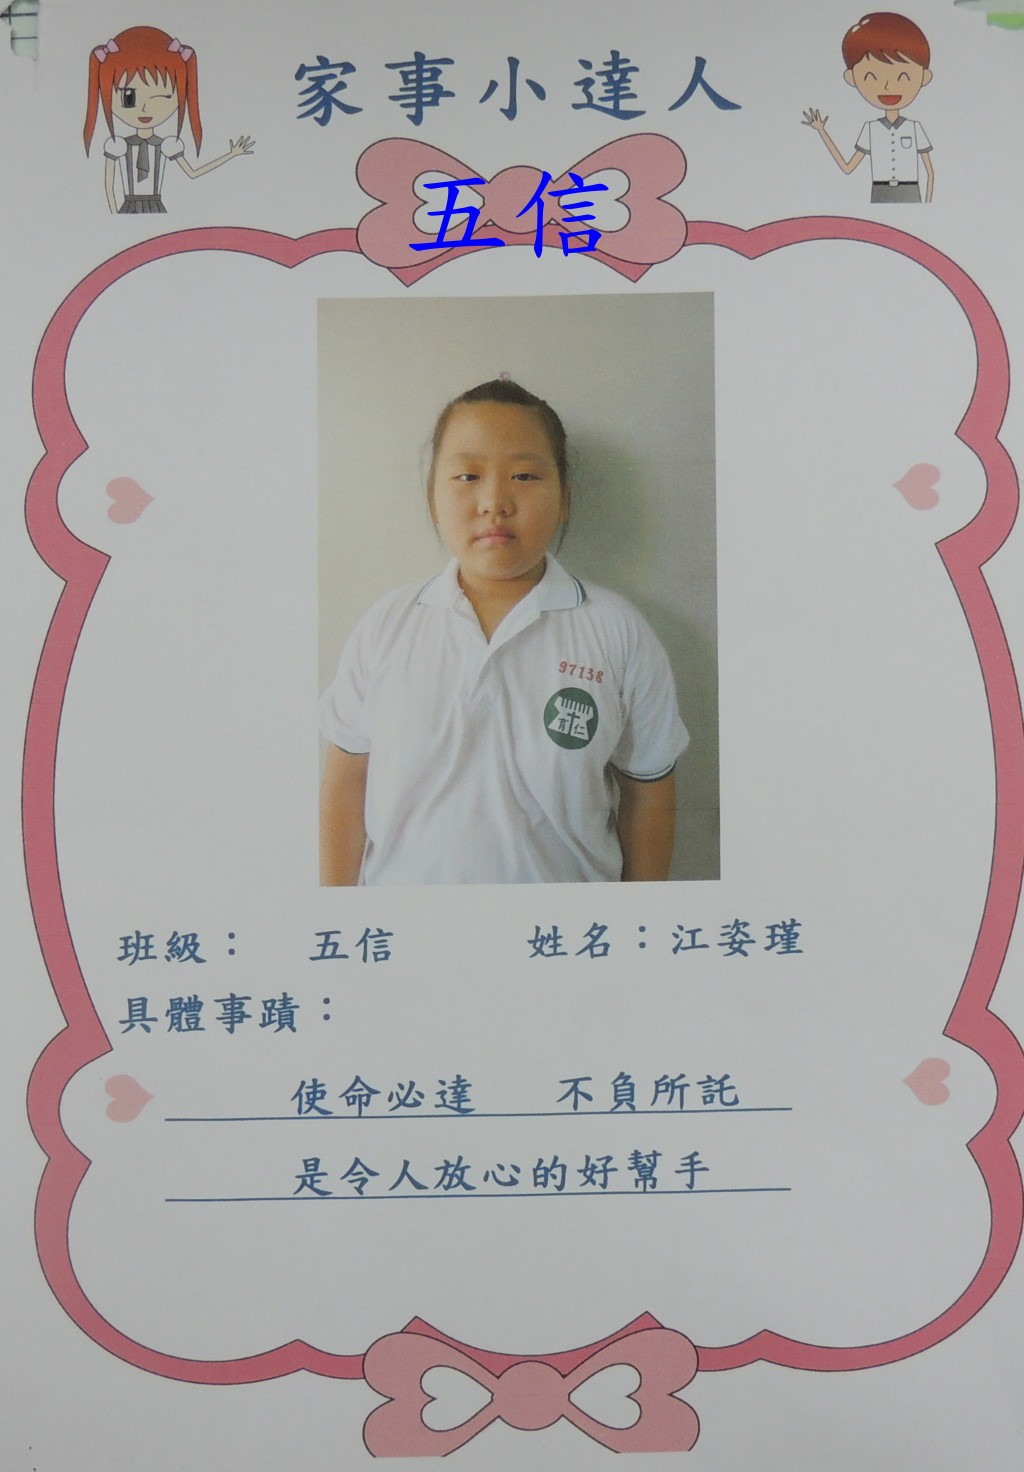 家事小達人
五信
97138
育仁
班級： 五信 姓名：江姿瑾
具體事蹟：
使命必達 不負所託
是令人放心的好幫手